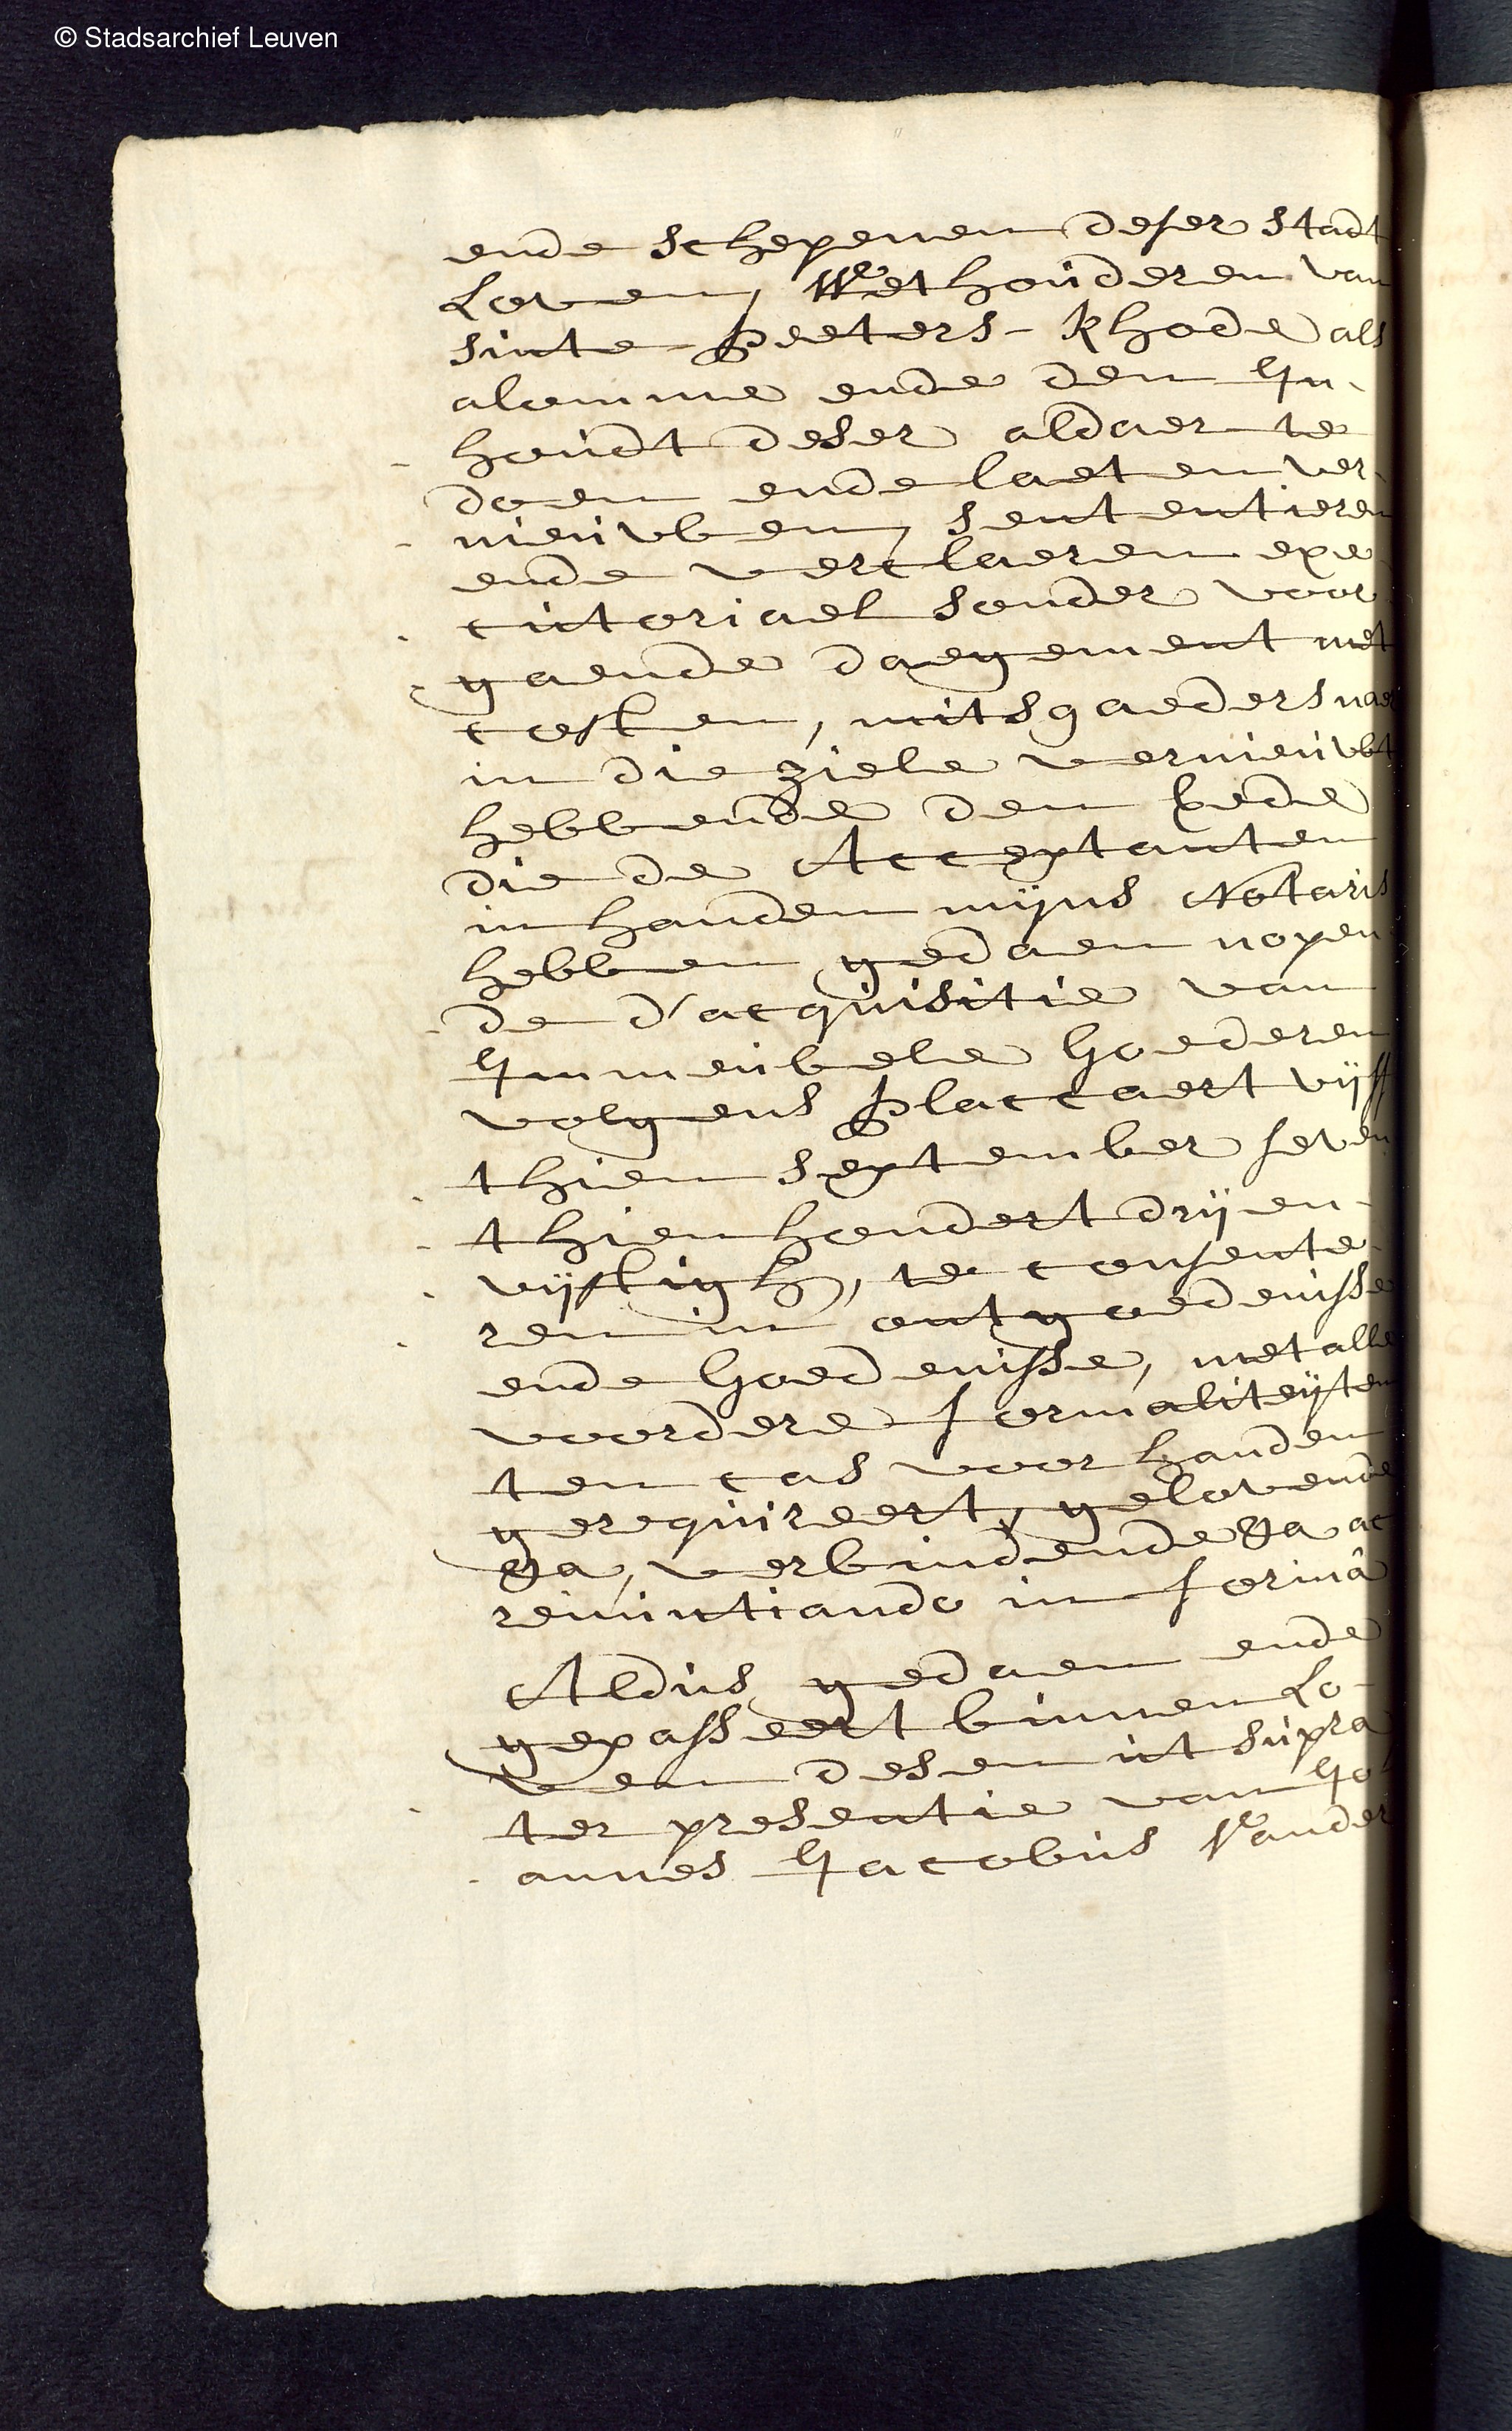 © Stadsarchief Leuven
ende schepenen deser Stadt
Loven, Wethouderen van
sinte Peeters-Rhode als
alomme ende den In-
houdt deser aldaer te
doen ende laeten ver-
nieuwen, sententieren
ende verclaeren exe
cutoriael sonder voor
gaende daegement met
costen, mitsgaeders naer
in die ziele vernieuwt
hebbende den eede
die de Acceptanten
in handen mijns Notaris
hebben gedaen nopen
de d'acquisitie van
Immeubele Goederen
volgens Placcaert vijff
thien September seven
thien hondert drij en-
vijftigh, te consente
ren in ontgoedenisse
ende Goedenisse, met alle
voordere formaliteijten
ten cas voor handen
gerequireert, gelovende
&a, verbindende &a ac
renuntiando in formâ
Aldus gedaen ende
gepasseert binnen Lo-
ven desen ut supra
ter presentie van Jo
annes Jacobus Vander